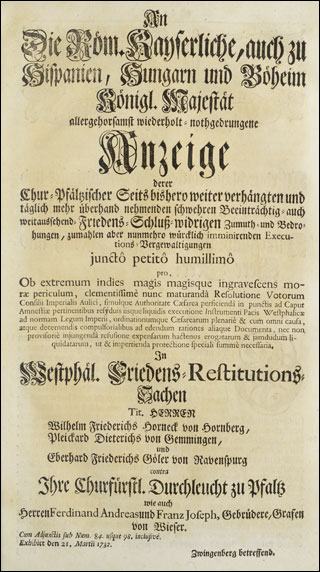 An
Die Röm. Kayserliche, auch zu
Hispanien, Hungarn und Böheim
Königl. Majestät
allergehorsamst wiederholt-nothgedrungene
Anzeige
derer
Chur-Pfältzischer Seits bishero weiter verhängten und
täglich mehr überhand nehmenden schwehren Beeinträchtig-auch
weitaussehend-Friedens-Schluß-widrigen Zumuth-und Bedro-
hungen, zumahlen aber nunmehro würcklich imminirenden Execu-
tions-Vergewaltigungen
junctô petitô humillimô
pro,
Ob extremum indies magis magisque ingravescens mo-
ræ periculum, clementissimè nunc maturandâ Resolutione Votorum
Consilii Imperialis Aulici, simulque Authoritate Cæsarea perficiendâ in punctis ad Caput
Amnestiæ pertinentibus resyduis usque liquidis executione Instrumenti Pacis Westphalicæ
ad normam Legum Imperii, ordinationumque Cæsarearum plenariè & cum omni causa,
atque decernendis compulsorialibus ad edendum rationes aliaque Documenta, nec non
provisoriè injungenda refusione expensarum hactenus erogatarum & jamdudum li-
quidatarum, ut & impertienda protectione speciali summè necessaria,
In
Westphäl. Friedens-Restitutions-
Sachen
Tit. HERREN
Wilhelm Friederichs Horneck von Hornberg,
Pleickard Dieterichs von Gemmingen,
und
Eberhard Friederichs Göler von Ravenspurg
contra
Ihre Churfürstl. Durchleucht zu Pfaltz
wie auch
Herren Ferdinand Andreas und Frantz Joseph, Gebrüdere, Grafen
von Wieser.
Cum Adjunctis sub Num. 84. usque 98. inclusivè.
Exhibitet den 21. Martii 1732.
Zwingenberg betreffend.